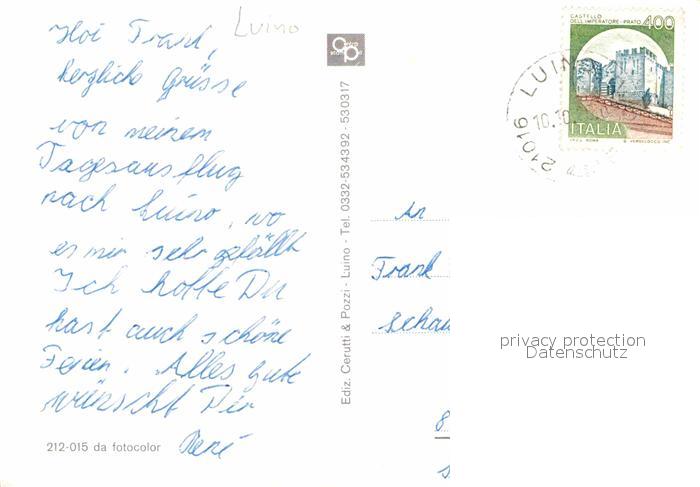 Luino
Hoi Frank,
herzliche Grüsse
von meinem
Tagesausflug
nach Luino, wo
es mir sehr gefällt
Ich hoffe Du
hast auch schöne
Ferien. Alles gute
wünscht Dir
René
212-015 da fotocolor
Ediz. Cerutti & Pozzi - Luino - Tel. 0332-534392 - 530317
CASTELLO
DELL'IMPERATORE-PRATO 400
ITALIA
21016 LUINO
10.10
An
Frank
Schau
8
privacy protection
Datenschutz